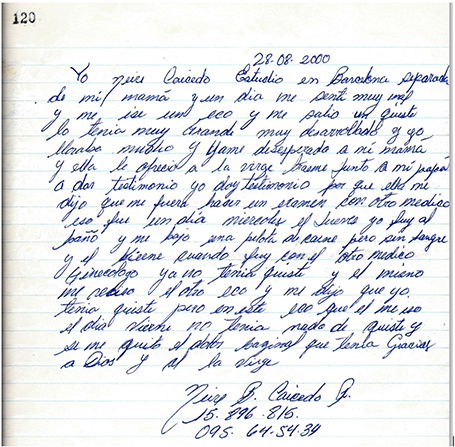 120
28.08.2000
Yo Neire Caicedo Estudio en Barcelona separada
de mi mamá y un dia me senti muy mal
y me ise un eco y me salio un quiste
lo tenia muy Grande muy desarrollado y yo
lloraba mucho y llame desesperada a mi mamá
y ella le ofrecio a la virge traeme junto a mi papá
a dar testimonio yo doy testimonio por que ella me
dijo que me fuera haser un examen con otro medico
eso fue un dia miercoles el Jueves yo fuy al
baño y me bajo una pelota de carne pero sin sangre
y el viernes cuando fuy con el otro medico
Ginecologo ya no tenia quiste y el mismo
me reviso el otro eco y me dijo que yo
tenia quiste pero en este eco que el me iso
el dia viernes no tenia nada de quiste y
se me quito el dolor vaginal que tenia Gracias
a Dios y a la virge
B. Caicedo R.
15.896.815.
095. 64.54.34